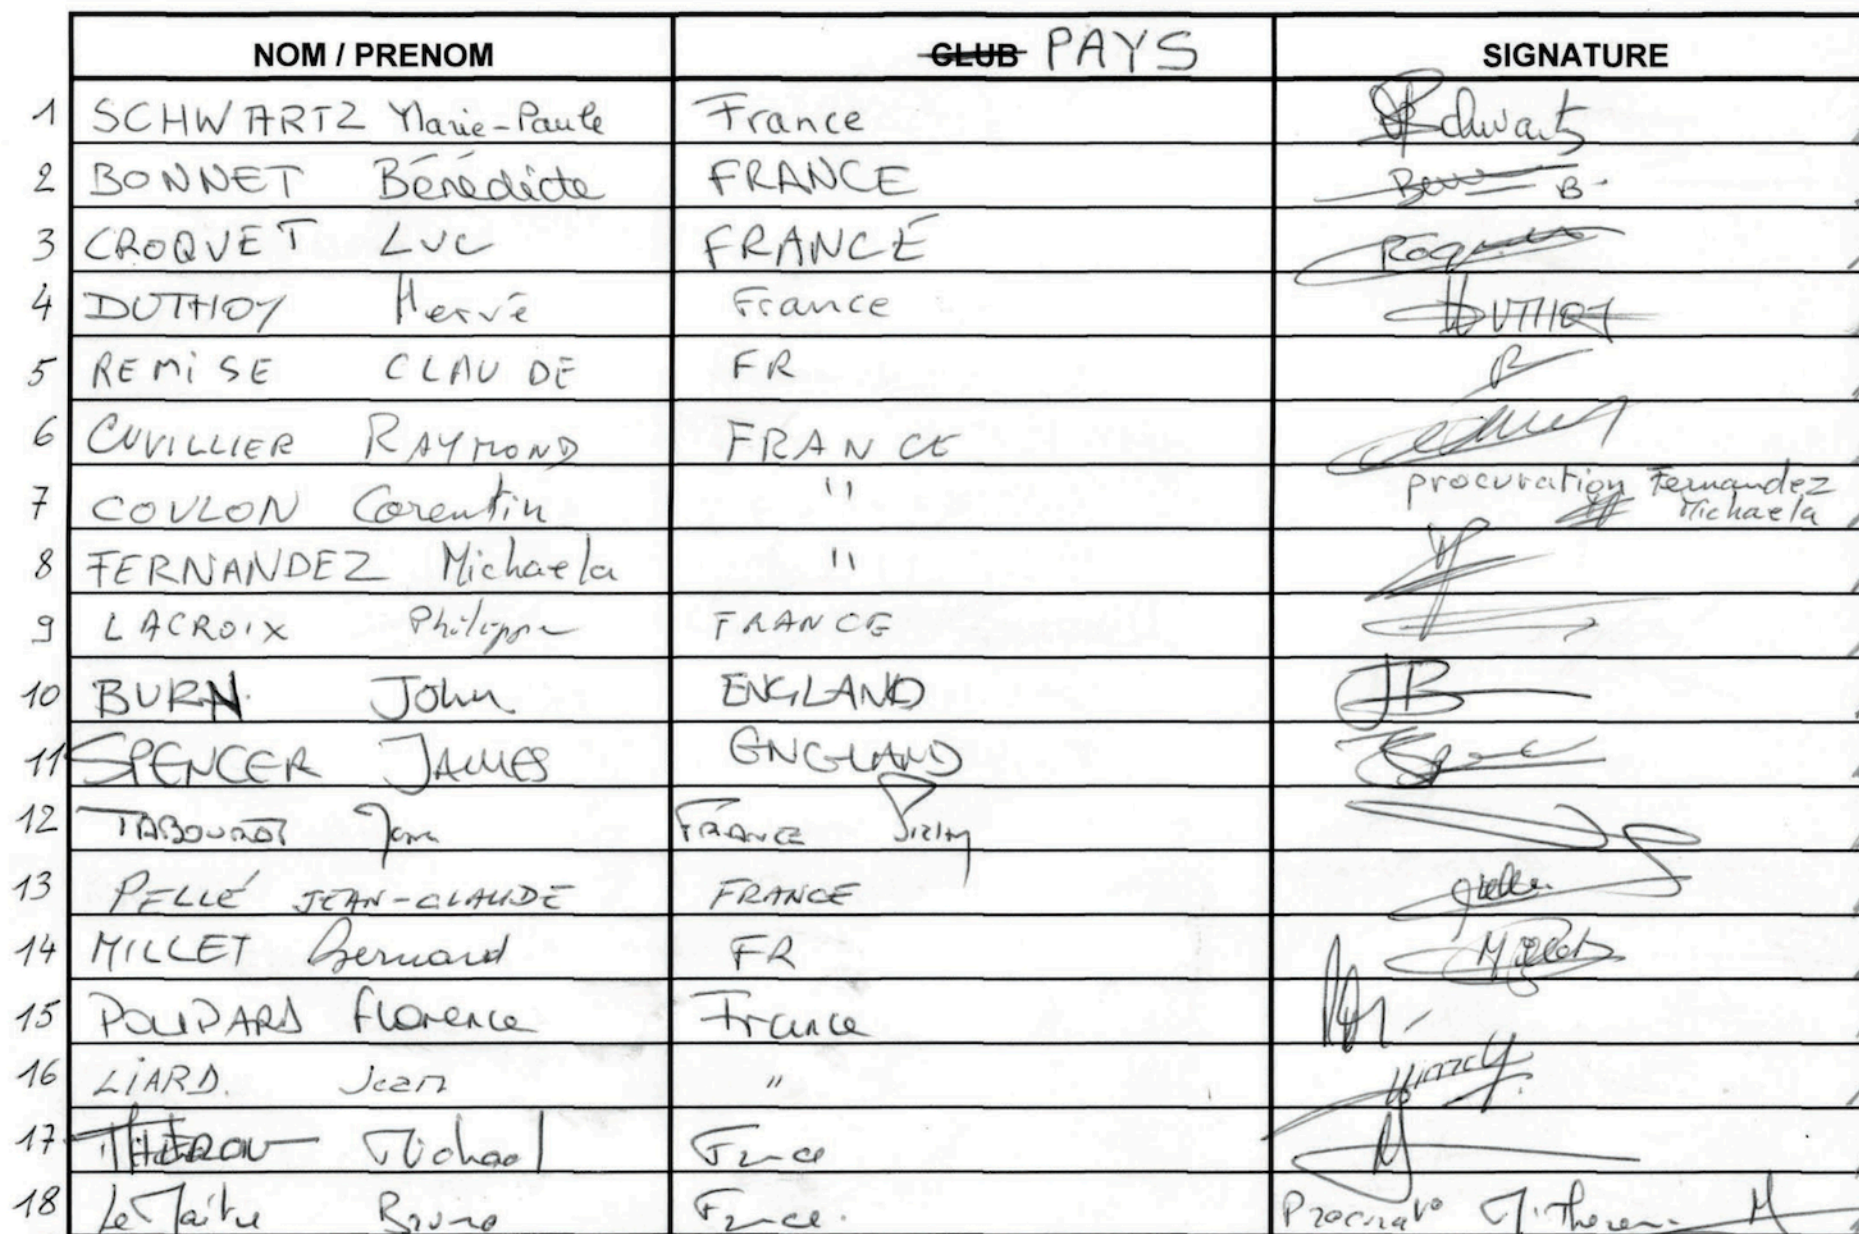 NOM / PRENOM CLUB PAYS SIGNATURE
1 SCHWARTZ Marie-Paule France Schwartz
2 BONNET Bénédicte FRANCE B.
3 CROQUET LUC FRANCE
4 DUTHOY Hervé France DUTHOY
5 REMISE CLAUDE FR
6 CUVILLIER RAYMOND FRANCE
7 COULON Corentin " procuration Fernandez
Michaela
8 FERNANDEZ Michaela "
9 LACROIX Philippe FRANCE
10 BURN John ENGLAND JB
11 SPENCER JAMES ENGLAND
12 TABOUROT FRANCE
13 PELLÉ JEAN-CLAUDE FRANCE
14 MILLET Bernard FR
15 POUPARD Florence France
16 LIARD. Jean "
17 THERON Michael France
18 LeMaitre Bruno France.